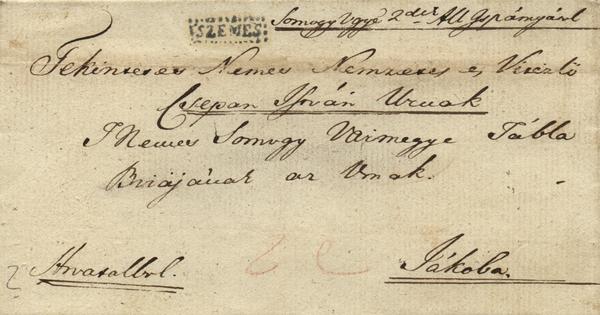 SZEMES
Somogy Vgye 2dik All Ispányáúl
Tekintetes Nemes Nemzetes és Vitézlő
Csépan István Urnak
T Nemes Somogy Vármegye Tábla
Birájának az Urnak.
Hivatalbul.
Jákóba.